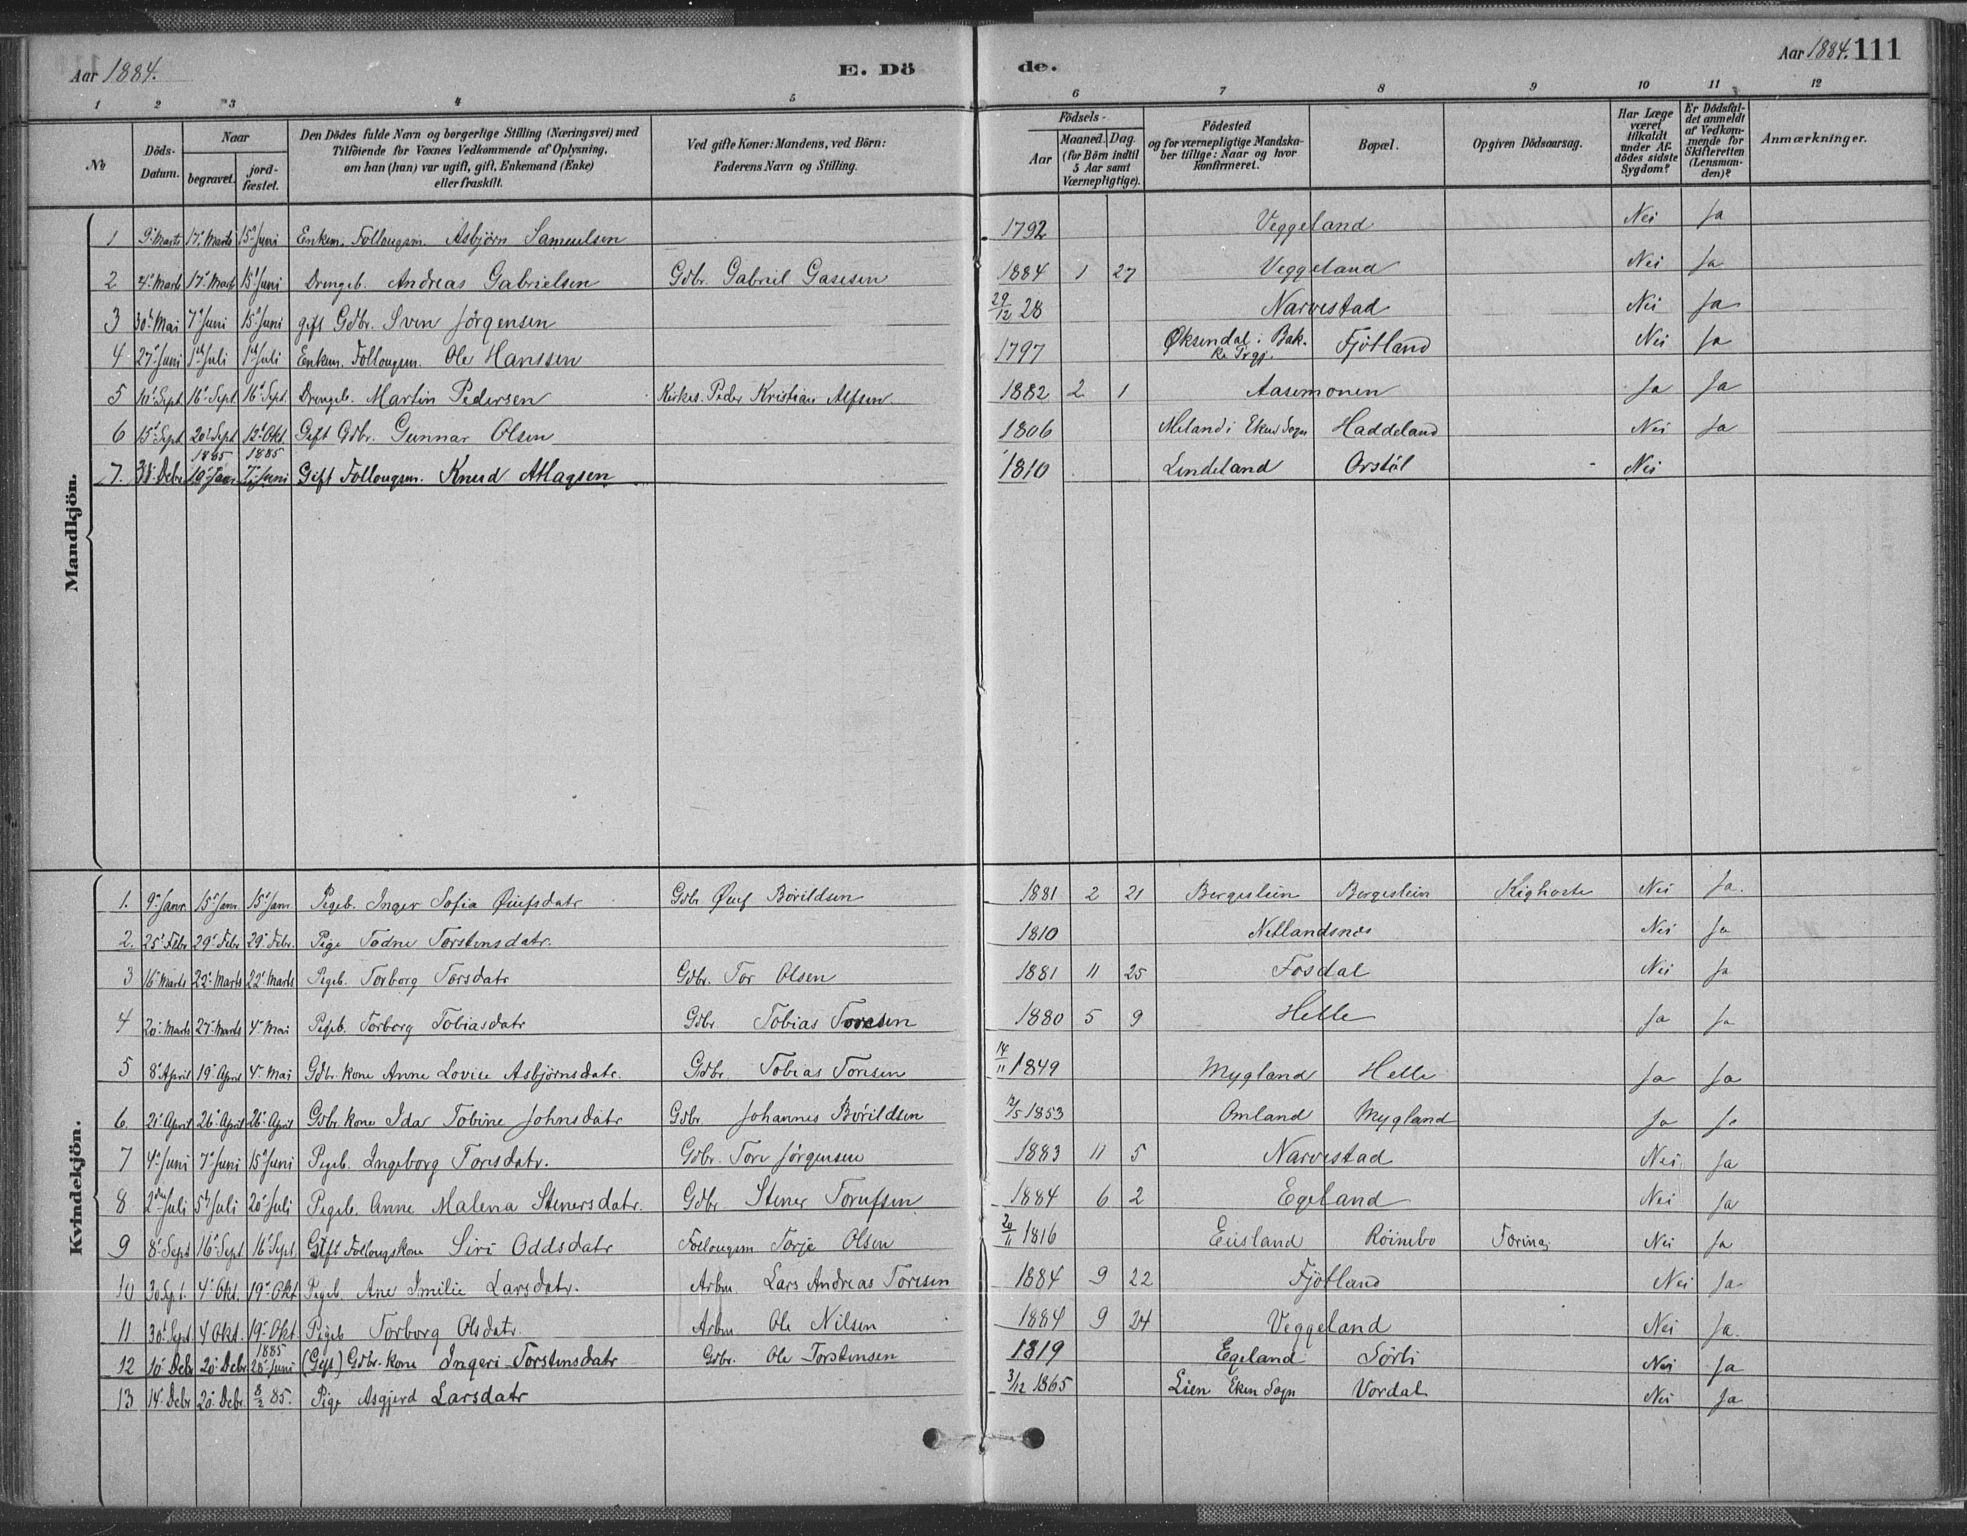 Aar 1884. E. Dö de. Aar 1884. 111
1 2 3 4 5 6 7 8 9 10 11 12
No
Döds-Datum.
Naar
begravet.
jord-fæstet.
Den Dödes fulde Navn og borgerlige Stilling (Næringsvei) med
Tilföiende for Voxnes Vedkommende af Oplysning,
om han (hun) var ugift, gift, Enkemand (Enke)
eller fraskilt.
Ved gifte Koner: Mandens, ved Börn:
Faderens Navn og Stilling.
Födsels-
Aar
Maaned. Dag.
(for Börn indtil
5 Aar samt
Værnepligtige).
Födested
og for værnepligtige Mandska-
ber tillige: Naar og hvor
Konfirmeret.
Bopæl.
Opgiven Dödsaarsag.
Har Læge
været
tilkaldt
under Af-
dödes sidste
Sygdom?
Er Dödsfal-
det anmeldt
af Vedkom-
mende for
Skifteretten
(Lensman-
den)?
Anmærkninger.
Mandkjön.
1 9de Marts 17de Marts 15de Juni Enkem. Follougsm. Asbjörn Samuelsen 1792 Veggeland Nei Ja
2 4de Marts 17de Marts 15de Juni Drengeb. Andreas Gabrielsen Gdbr. Gabriel Gasesen 1884 1 27 Veggeland Nei Ja
3 30te Mai 7de Juni 15de Juni gift Gdbr. Sven Jörgensen 29/12 28 Narvestad Nei Ja
4 27de Juni 1ste Juli 1ste Juli Enkem. Follougsm. Ole Hanssen 1797 Öksendal i Bak-
ke Prgj. Fjötland Nei Ja
5 10de Sept. 16de Sept. 16de Sept. Drengeb. Martin Pedersen Kirkes. Peder Kristian Alfsen 1882 2 1 Aasemonen Ja Ja
6 15de Sept 20de Sept 12te Okt. Gift Gdbr. Gunnar Olsen 1806 Meland i Eken Sogn Haddeland Nei Ja
1885 1885
7. Debr 19de Janr 7de Juni Gift Follougsm. Knud Atlagsen 1810 Lindeland Orstöl Nei
Kvindekjön.
1. 9de Janr. 15de Janr. 15de Janr. Pigeb. Inger Sofia Öiufsdatr Gdbr Öiuf Börildsen 1881 2 21 Bergeslien Bergeslein Kighoste Nei Ja.
2. 25de Febr 29de Febr 29de Febr. Pige Todne Torstensdatr. 1810 Netlandsnes Nei Ja
3 16de Marts 22de Marts 22de Marts Pigeb. Torborg Torsdatr Gdbr. Tor Olsen 1881 11 25 Fosdal Nei Ja
4 20de Marts 27de Marts 4de Mai Pigeb. Torborg Tobiasdatr Gdbr Tobias Toresen 1880 5 9 Helle Ja Ja
5 8de April 19de April 4de Mai Gdbr. kone Anne Lovise Asbjörnsdatr. Gdbr. Tobias Toresen 14/11 1849 Mygland Helle Ja Ja
6. 21de April 26de April 26de April Gdbr. kone Ida Tobine Johnsdatr Gdbr. Johannes Börildsen 12/5 1853 Omland Mygland Ja Ja
7 4de Juni 7de Juni 15de Juni Pigeb. Ingeborg Toresdatr. Gdbr. Tore Jörgensen 1883 11 5 Narvestad Nei Ja
8 2den Juli 5te Juli 20de Juli Pigeb. Anne Malena Stenersdatr. Gdbr Stener Torufsen 1884 6 2 Egeland Nei Ja
9 8de Sept 16de Sept 16de Sept. Gift Follougskone Siri Oddsdatr Follougsm Torje Olsen 20/11 1816 Eiisland Röinebo Tæring Nei Ja
10 30 Sept. 4de Okt. 19de Okt Pigeb. Ane Imilie Larsdatr. Arbm. Lars Andreas Toresen 1884 9 22 Fjötland Nei Ja
11 30te Sept. 4 Okt. 19de Okt. Pigeb Torborg Olsdatr. Arbm Ole Nilsen 1884 9 24 Veggeland Nei Ja.
1885
12 10de Debr 20de Debr 28de Juni (Gift) Gdbr. kone Ingeri Torstensdatr Gdbr. Ole Torstensen 1819 Egeland Sörli Nei Ja
13 14de Debr 20de Debr. 8/2 85. Pige Asgjerd Larsdatr 3/12 1865 Lien Eken Sogn Vordal Nei Ja